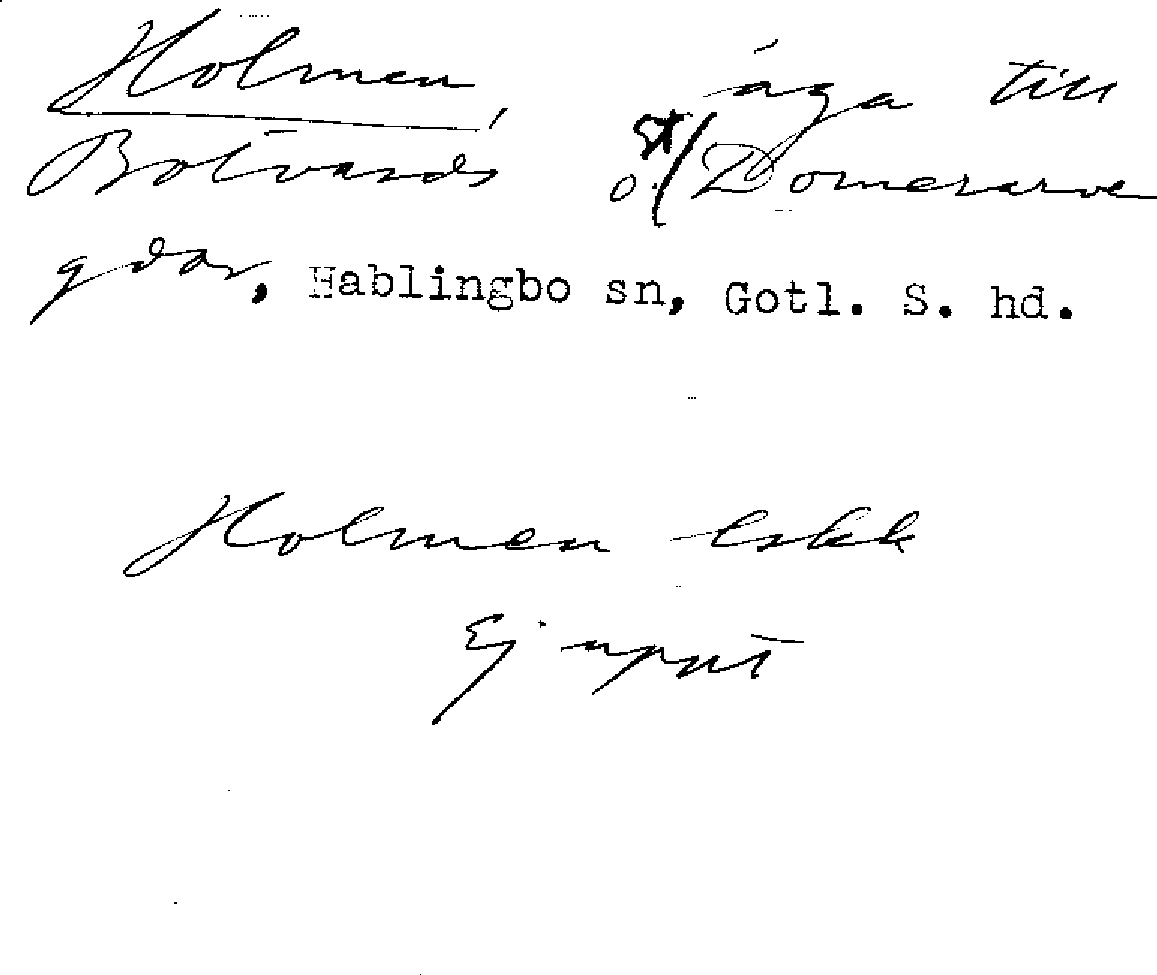 Holmen, äga till
Botvards o. St/Domerarve
gdar, Hablingbo sn, Gotl. S. hd.
Holmen lskk
Ej uppt